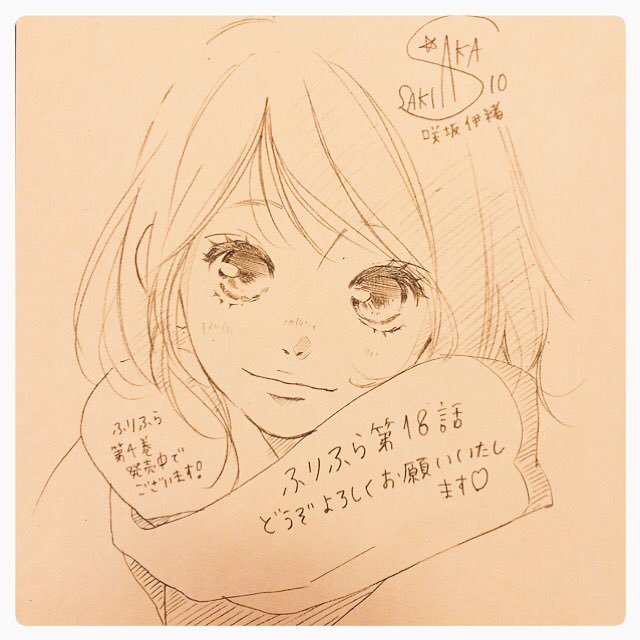 SAKI★SAKA
10
咲坂伊緒
ふりふら
第4巻
発売中で
ございます!
ふりふら第18話
どうぞよろしくお願いいたし
ます♡